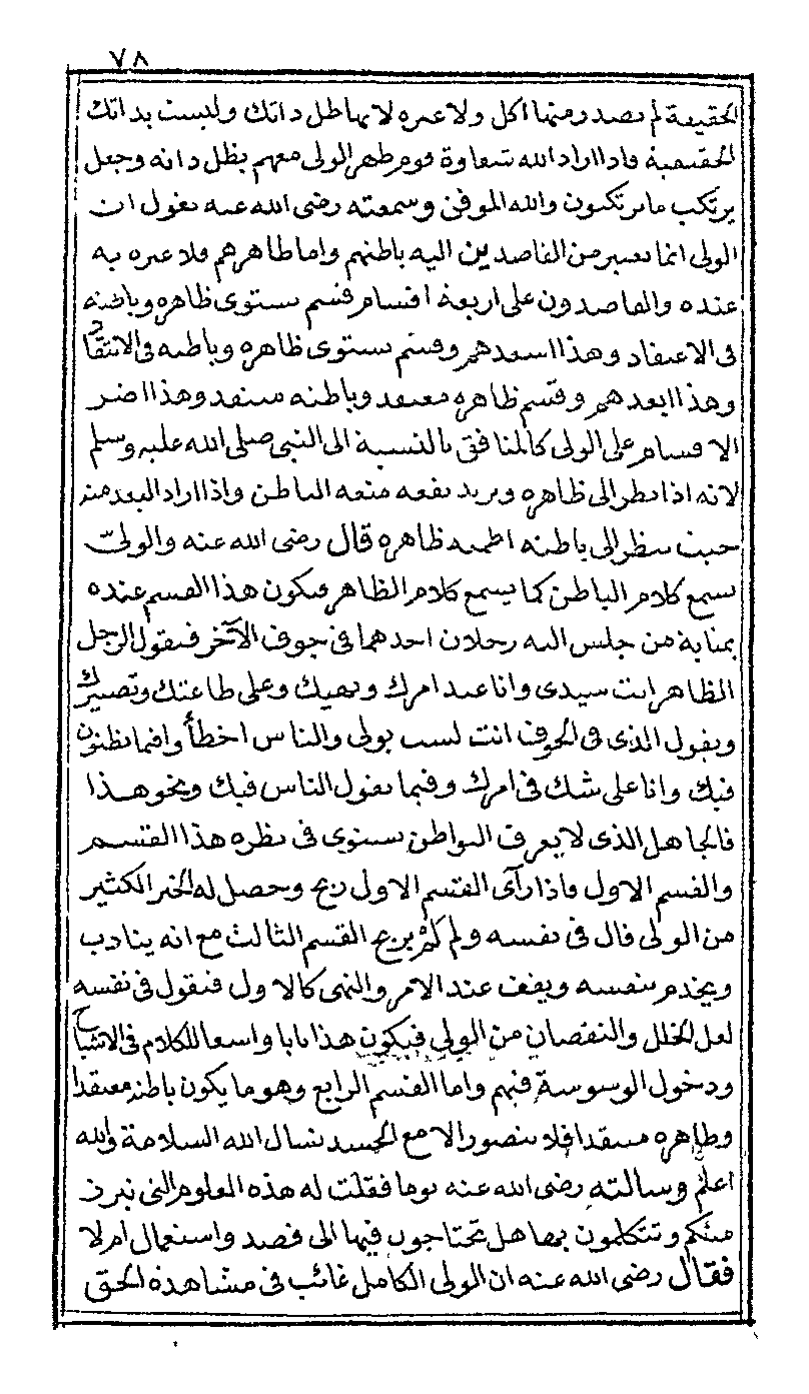 ٧٨
الحقيقة لم يصدر منها اكل ولا غيره لانها ظل ذاتك وليست بذاتك
الحقيقية فاذا اراد الله شقاوة قوم ظهر الولى معهم بظل ذاته وجعل
يرتكب ما يرتكبون والله الموفق وسمعته رضى الله عنه يقول ان
الولى انما يعتبر من القاصدين اليه باطنهم واما ظاهرهم فلا عبره به
عنده والقاصدون على اربعة اقسام قسم يستوى ظاهره وباطنه
فى الاعتقاد وهذا اسعدهم وقسم يستوى ظاهره وباطنه فى الانتقاد
وهذا ابعدهم وقسم ظاهره معتقد وباطنه منتقد وهذا اضر
الاقسام على الولى كالمنافق بالنسبة الى النبى صلى الله عليه وسلم
لانه اذا نظر الى ظاهره ويريد نفعه منعه الباطن واذا اراد البعد منه
حيث ينظر الى باطنه اطمعه ظاهره قال رضى الله عنه والولىّ
يسمع كلام الباطن كما يسمع كلام الظاهر فيكون هذا القسم عنده
بمثابة من جلس اليه رجلان احدهما فى جوف الآخر فيقول الرجل
الظاهر انت سيدى وانا عند امرك ونهيك وعلى طاعتك وتصييرك
ويقول الذى فى الجوف انت لست بولى والناس اخطأوا فيما يظنون
فيك وانا على شك فى امرك وفيما يقول الناس فيك ونحو هذا
فالجاهل الذى لا يعرف البواطن يستوى فى نظره هذا القسم
والقسم الاول فاذا رآى القسم الاول ربح وحصل له الخير الكثير
من الولى قال فى نفسه ولم لم يربح القسم الثالث مع انه يتادب
ويخدم بنفسه ويقف عند الامر والنهى كالاول فيقول فى نفسه
لعل الخلل والنقصان من الولى فيكون هذا بابا واسعا للكلام فى الاشياخ
ودخول الوسوسة فيهم واما القسم الرابع وهو ما يكون باطنه معتقدا
وظاهره منتقدا فلا يتصور الا مع الحسد نسال الله السلامة والله
اعلم وسالته رضى الله عنه يوما فقلت له هذه العلوم التى تبرز
منكم وتتكلمون بها هل تحتاجون فيها الى قصد واستعمال ام لا
فقال رضى الله عنه ان الولى الكامل غائب فى مشاهدة الحق